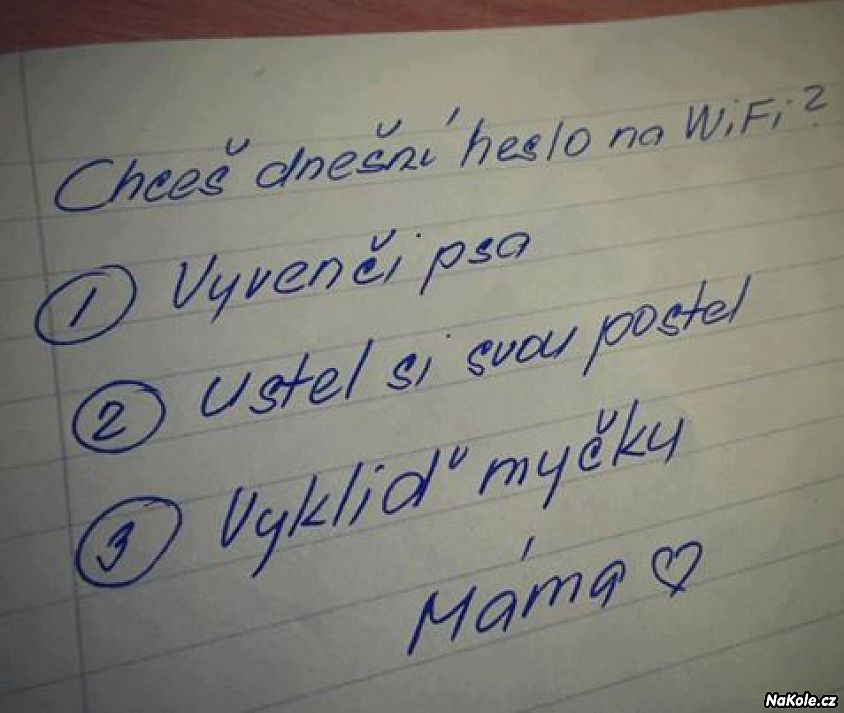 Chceš dnešní heslo na WiFi?
1 Vyvenči psa
2 Ustel si svou postel
3 Vykliď myčky
Máma ♡
NaKole.cz